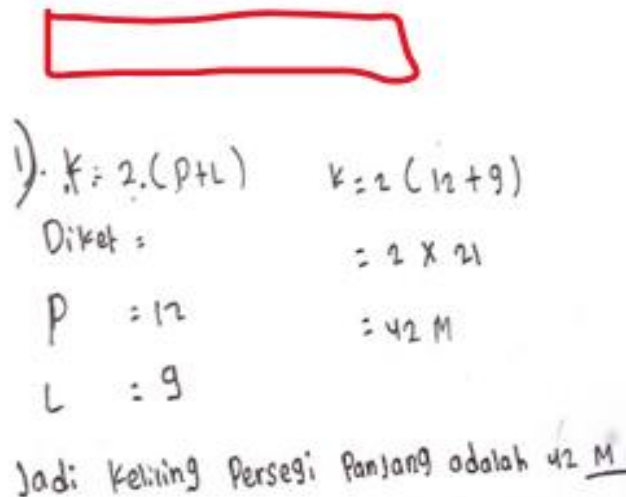 1). K = 2.(P+L)
Diket =
P = 12
L = 9
K = 2 (12+9)
= 2 X 21
= 42 M
Jadi Keliling Persegi Panjang adalah 42 M